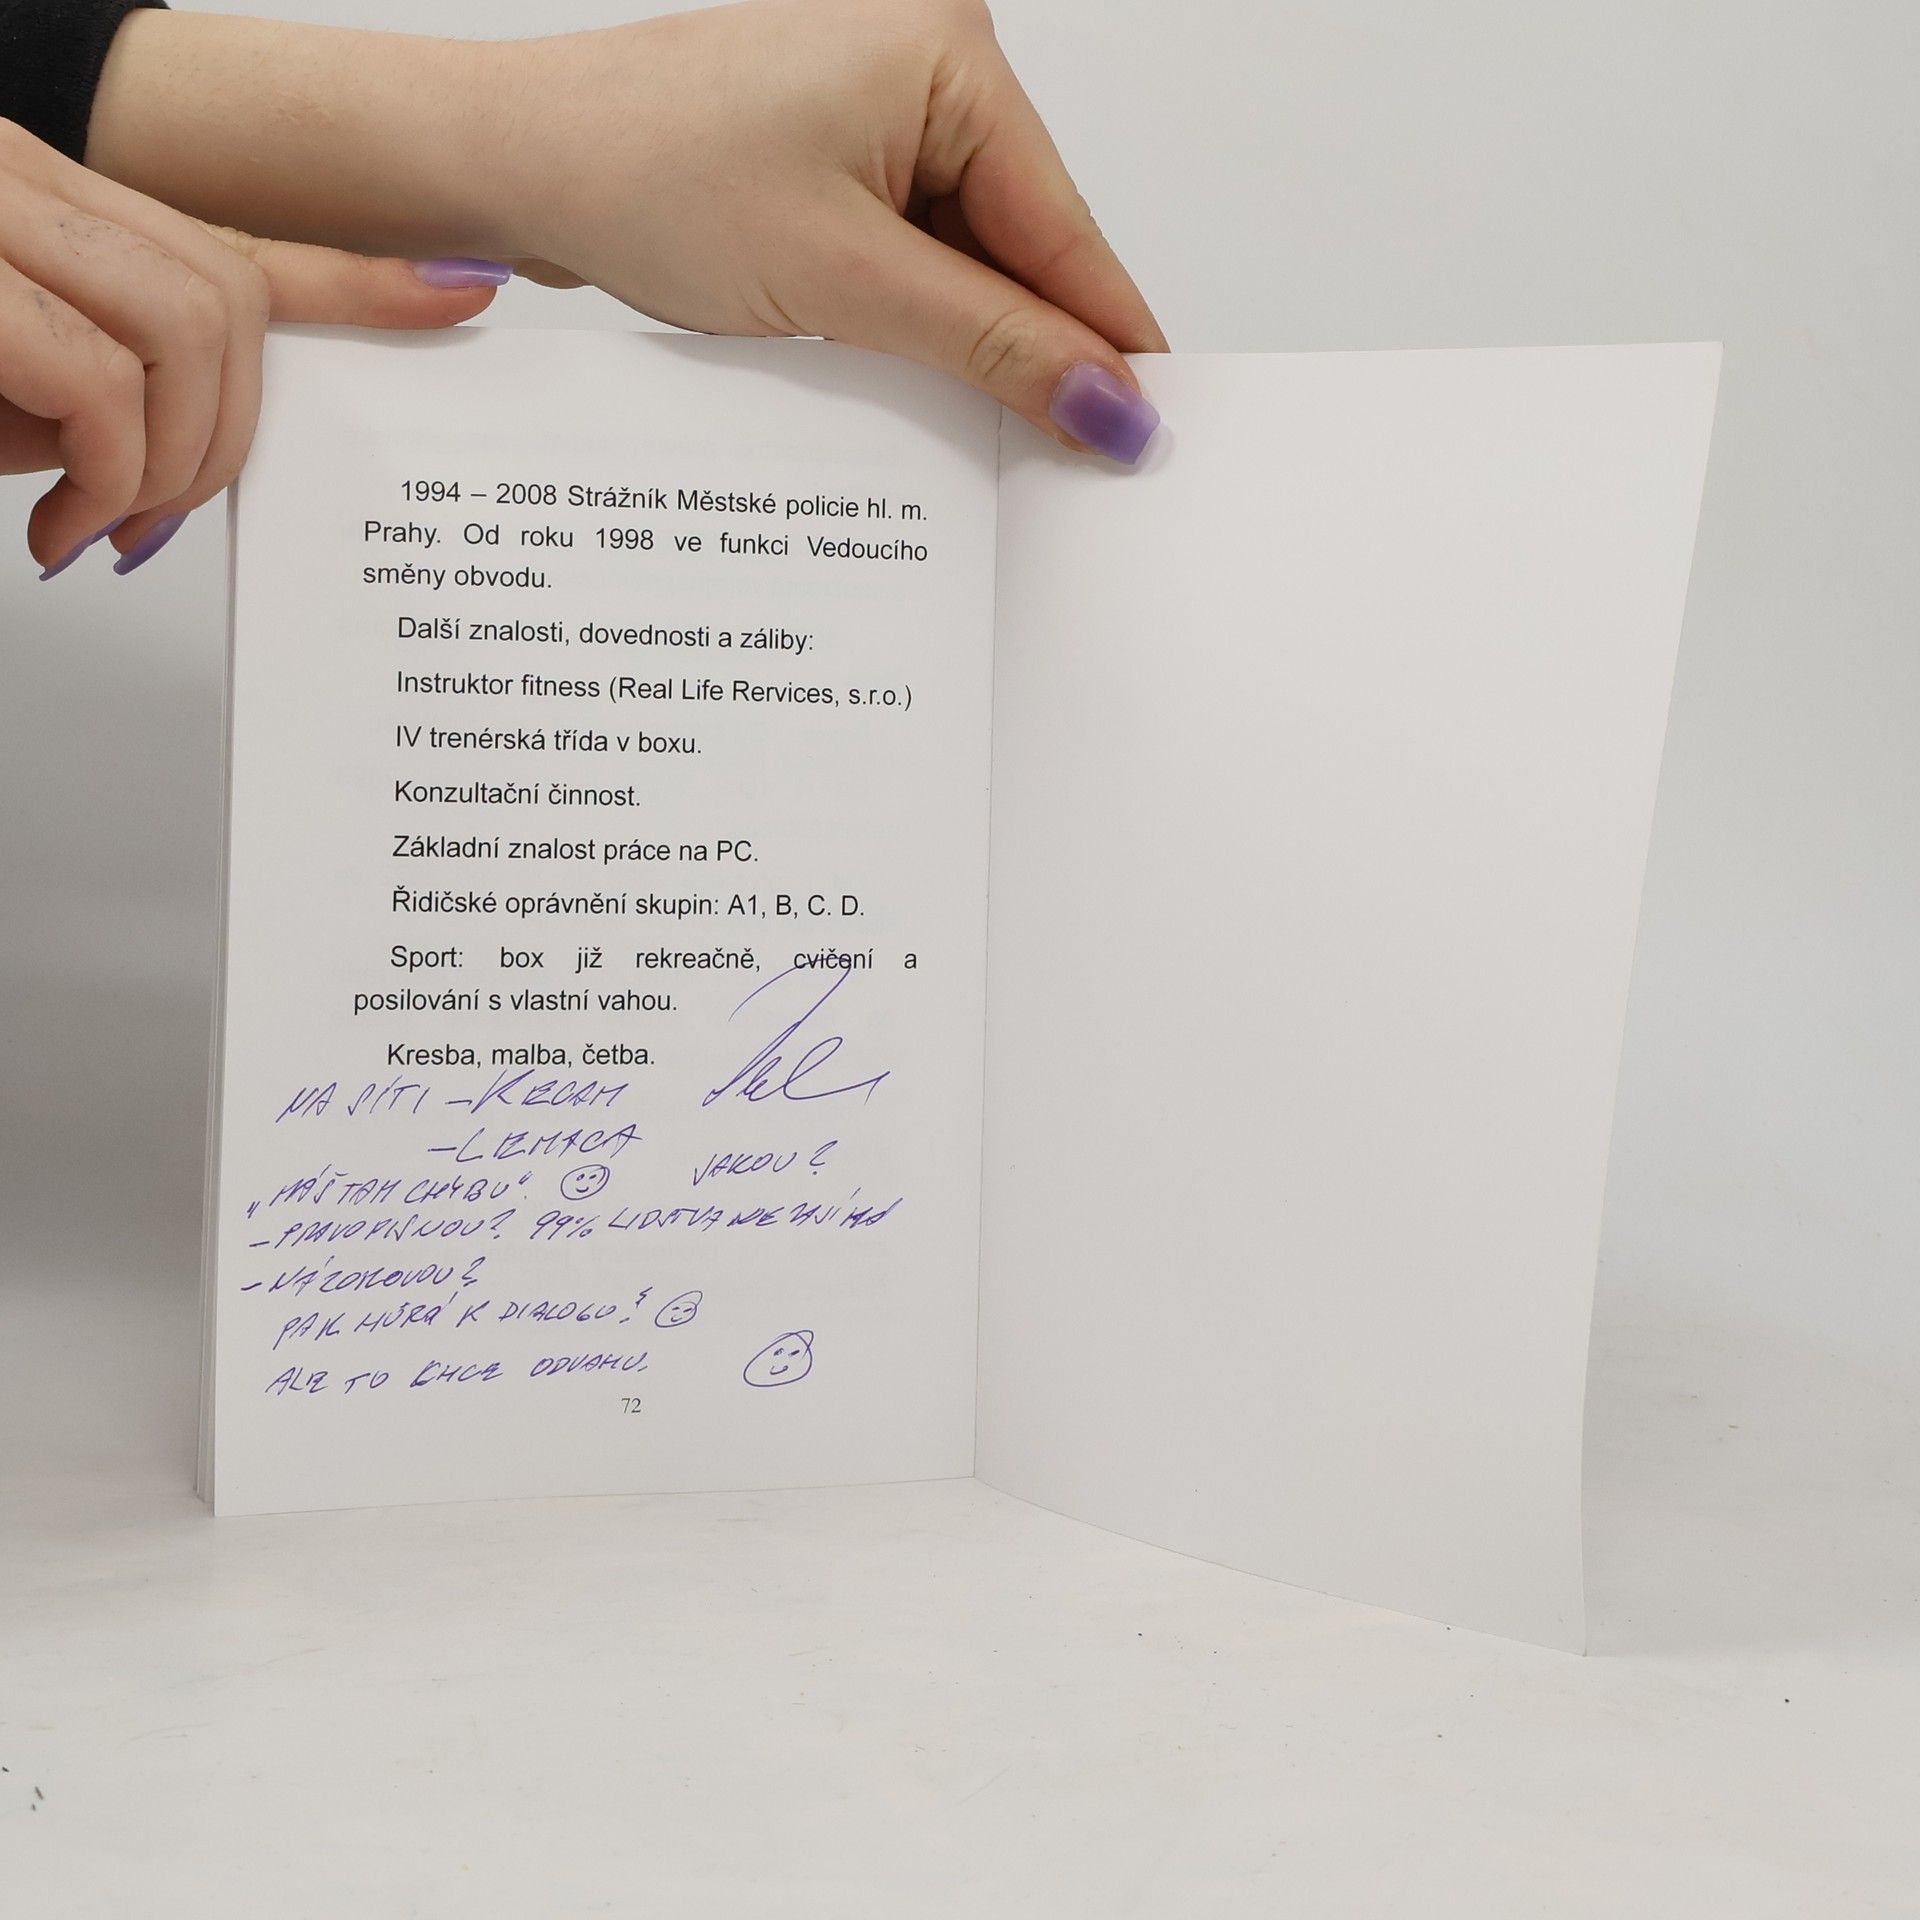 1994 – 2008 Strážník Městské policie hl. m.
Prahy. Od roku 1998 ve funkci Vedoucího
směny obvodu.
Další znalosti, dovednosti a záliby:
Instruktor fitness (Real Life Rervices, s.r.o.)
IV trenérská třída v boxu.
Konzultační činnost.
Základní znalost práce na PC.
Řidičské oprávnění skupin: A1, B, C. D.
Sport: box již rekreačně, cvičení a
posilování s vlastní vahou.
Kresba, malba, četba.
NA SÍTI –
„MÁŠ TAM CHYBU“. JAKOU?
– PRAVOPISNOU? 99% LIDSTVA NEZAJÍMÁ
– NÁZOROVOU?
PAK HURÁ K DIALOGU!
ALE TO CHCE ODVAHU.
72